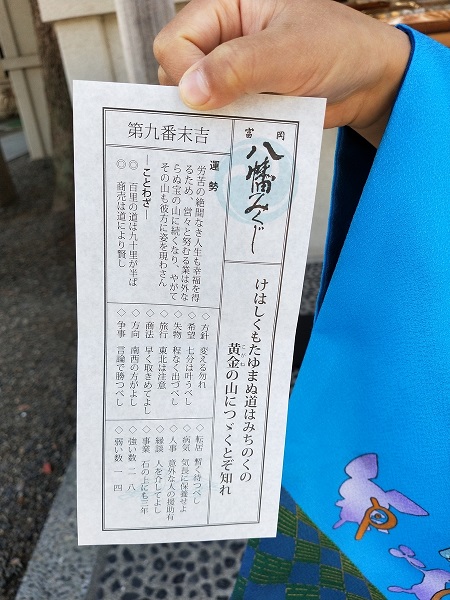 富岡
八幡みくじ
けはしくもたゆまぬ道はみちのくの
黄金の山につゞくとぞ知れ
こがね
第九番末吉
運勢
労苦の絶間なき人生も幸福を得
るため、営々と努むる業は外な
らぬ宝の山に続くなり、やがて
その山も彼方に姿を現わさん
―ことわざ―
◎ 百里の道は九十里が半ば
◎ 商売は道により賢し
◇方針 変える勿れ
◇希望 七分は叶うべし
◇失物 程なく出づべし
◇旅行 東北は注意
◇商法 早く取きめてよし
◇方向 南西の方がよし
◇争事 言論で勝つべし
◇転居 暫く待つべし
◇病気 気長に保養せよ
◇人事 意外な人の援助有
◇縁談 人を介してよし
◇事業 石の上にも三年
◇強い数 二 八
◇弱い数 一 四